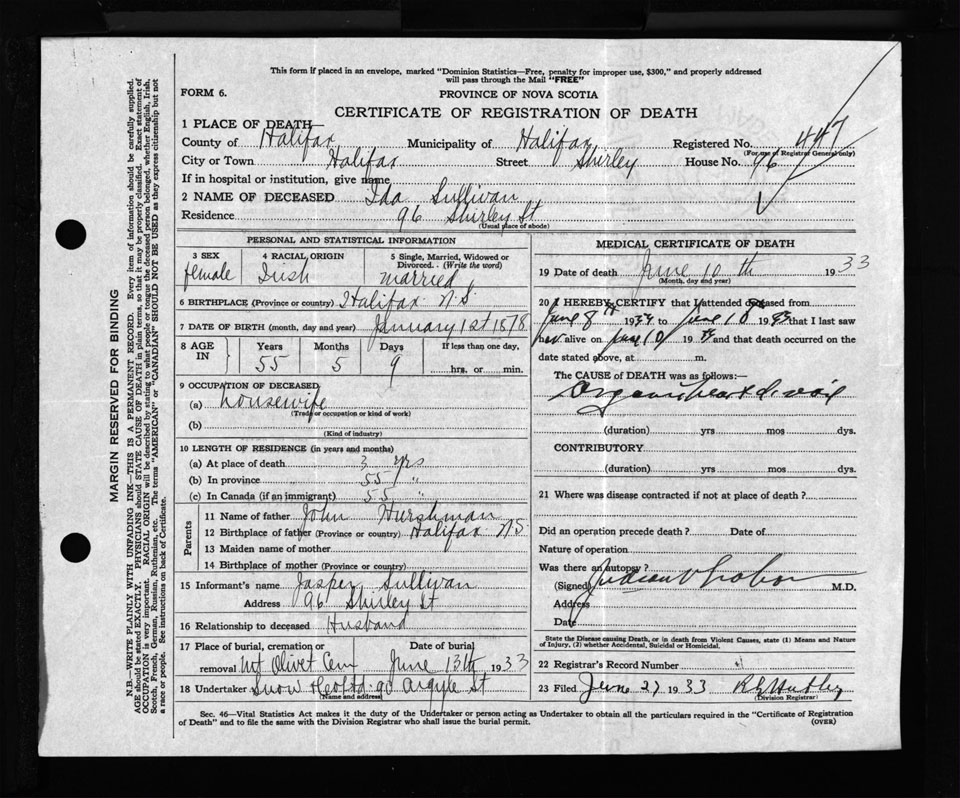 This form if placed in an envelope, marked "Dominion Statistics—Free, penalty for improper use, $300," and properly addressed
will pass through the Mail "FREE"
FORM 6.
PROVINCE OF NOVA SCOTIA
CERTIFICATE OF REGISTRATION OF DEATH
1 PLACE OF DEATH
County of Halifax Municipality of Halifax Registered No. 447
(For use of Registrar General only)
City or Town Halifax Street Shirley House No. 96
If in hospital or institution, give name
2 NAME OF DECEASED Ida Sullivan
Residence 96 Shirley St
(Usual place of abode)
PERSONAL AND STATISTICAL INFORMATION
3 SEX 4 RACIAL ORIGIN 5 Single, Married, Widowed or
Divorced. (Write the word)
female Irish married
6 BIRTHPLACE (Province or country) Halifax N.S.
7 DATE OF BIRTH (month, day and year) January 1st 1878
8 AGE IN Years Months Days If less than one day,
55 5 9 hrs. or min.
9 OCCUPATION OF DECEASED
(a) housewife
(Trade or occupation or kind of work)
(b)
(Kind of industry)
10 LENGTH OF RESIDENCE (in years and months)
(a) At place of death 3 yrs
(b) In province 55 "
(c) In Canada (if an immigrant) 55 "
Parents
11 Name of father John Hurshman
12 Birthplace of father (Province or country) Halifax NS
13 Maiden name of mother
14 Birthplace of mother (Province or country)
15 Informant's name Jasper Sullivan
Address 96 Shirley St
16 Relationship to deceased Husband
17 Place of burial, cremation or Date of burial
removal Mt Olivet Cem June 13th 1933
18 Undertaker Snow 90 Argyle St
(Name and address)
MEDICAL CERTIFICATE OF DEATH
19 Date of death June 10th 1933
(Month, day and year)
20 I HEREBY CERTIFY that I attended deceased from
June 8th 1933 to June 10 1933 that I last saw
her alive on June 10 1933 and that death occurred on the
date stated above, at m.
The CAUSE of DEATH was as follows:—
Organic heart
(duration) yrs mos dys.
CONTRIBUTORY
(duration) yrs mos dys.
21 Where was disease contracted if not at place of death?
Did an operation precede death? Date of
Nature of operation
Was there an autopsy?
(Signed) M.D.
Address
Date
State the Disease causing Death, or in death from Violent Causes, state (1) Means and Nature
of Injury, (2) whether Accidental, Suicidal or Homicidal.
22 Registrar's Record Number
23 Filed June 27 1933
(Division Registrar)
Sec. 46—Vital Statistics Act makes it the duty of the Undertaker or person acting as Undertaker to obtain all the particulars required in the "Certificate of Registration
of Death" and to file the same with the Division Registrar who shall issue the burial permit. (OVER)
MARGIN RESERVED FOR BINDING
N.B.—WRITE PLAINLY WITH UNFADING INK—THIS IS A PERMANENT RECORD. Every item of information should be carefully supplied.
AGE should be stated EXACTLY. PHYSICIANS should STATE CAUSE OF DEATH in plain terms, so that it may be properly classified. Exact statement of
OCCUPATION is very important. RACIAL ORIGIN will be described by stating to what people or tongue the deceased person belonged, whether English, Irish,
Scotch, French, German, Russian, Ruthenian, etc. The terms "AMERICAN" or "CANADIAN" SHOULD NOT BE USED as they express citizenship but not
a race or people. See instructions on back of Certificate.